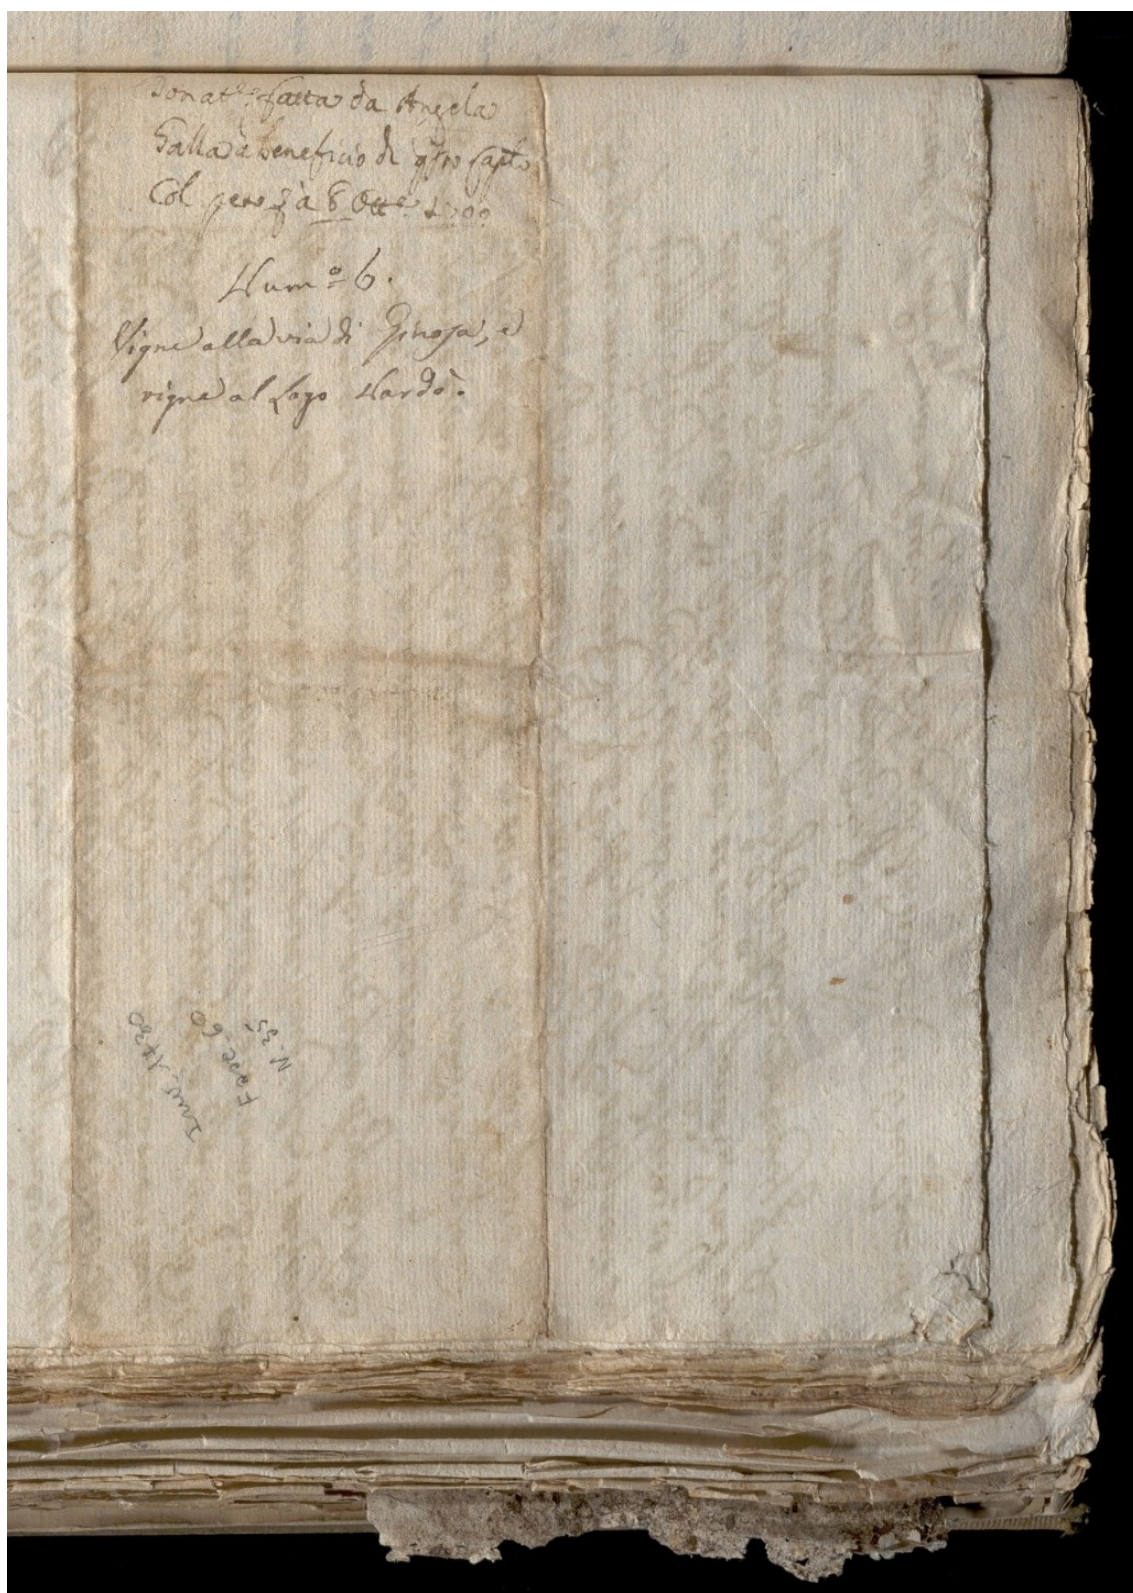 Donat.ne fatta da Angela
Galla a beneficio di qsto Caplo
Col peso 8 Ott.e
Num.o 6.
Vigne alla via di Ginosa, e
vigne al Lago Nardò.
Inv. 1430
Fasc. 60
N. 35